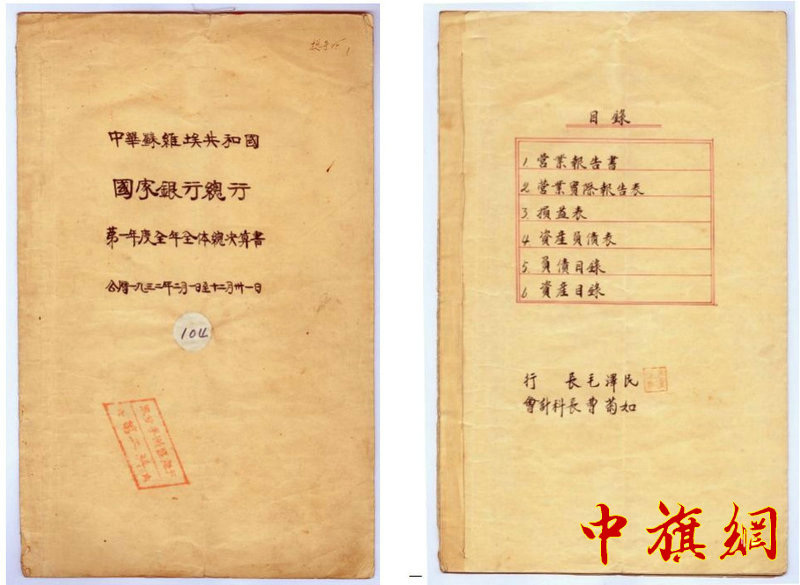 中華蘇維埃共和國
國家銀行總行
第一年度全年全体總决算書
公曆一九三二年二月一日至十二月卅一日
104
目錄
1 营業報告書
2. 营業實際報告表
3. 損益表
4. 資產負債表
5. 負債目錄
6 資產目錄
行 長 毛澤民
會計科長 曹菊如
中旗網